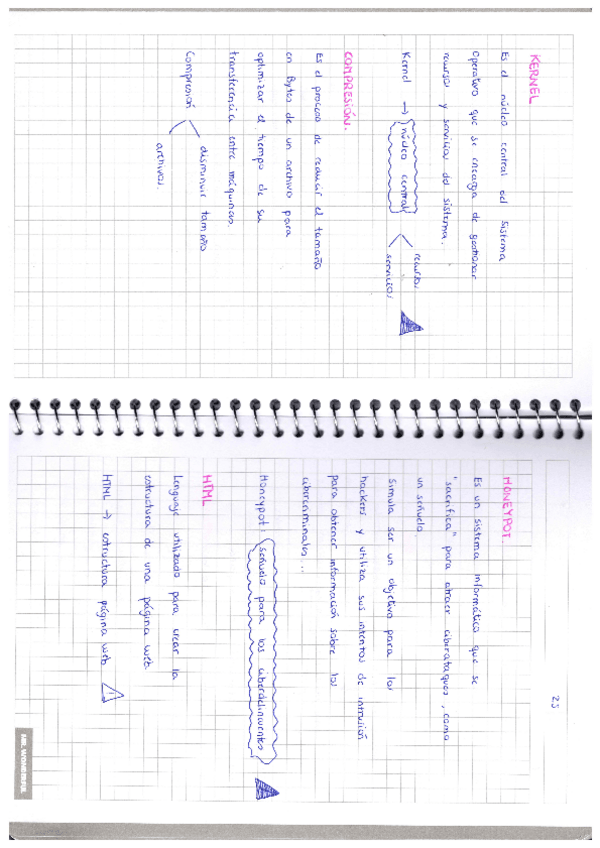 KERNEL
Es el núcleo central del Sistema
Operativo que se encarga de gestionar
recursos y servicios del sistema.
Kernel → núcleo central
recursos
servicios
COMPRESIÓN.
Es el proceso de reducir el tamaño
en Bytes de un archivo para
optimizar el tiempo de su
transferencia entre máquinas.
Compresión
disminuir tamaño
archivos.
25
HONEYPOT.
Es un sistema informático que se
"sacrifica" para atraer ciberataques, como
un señuelo
Simula ser un objetivo para los
hackers y utiliza sus intentos de intrusión
para obtener información sobre los
cibercriminales..
Honeypot: señuelo para los ciberdelincuentes
HTML
Lenguaje utilizado para crear la
estructura de una página web
HTML → estructura página web !
MR. WONDERFUL